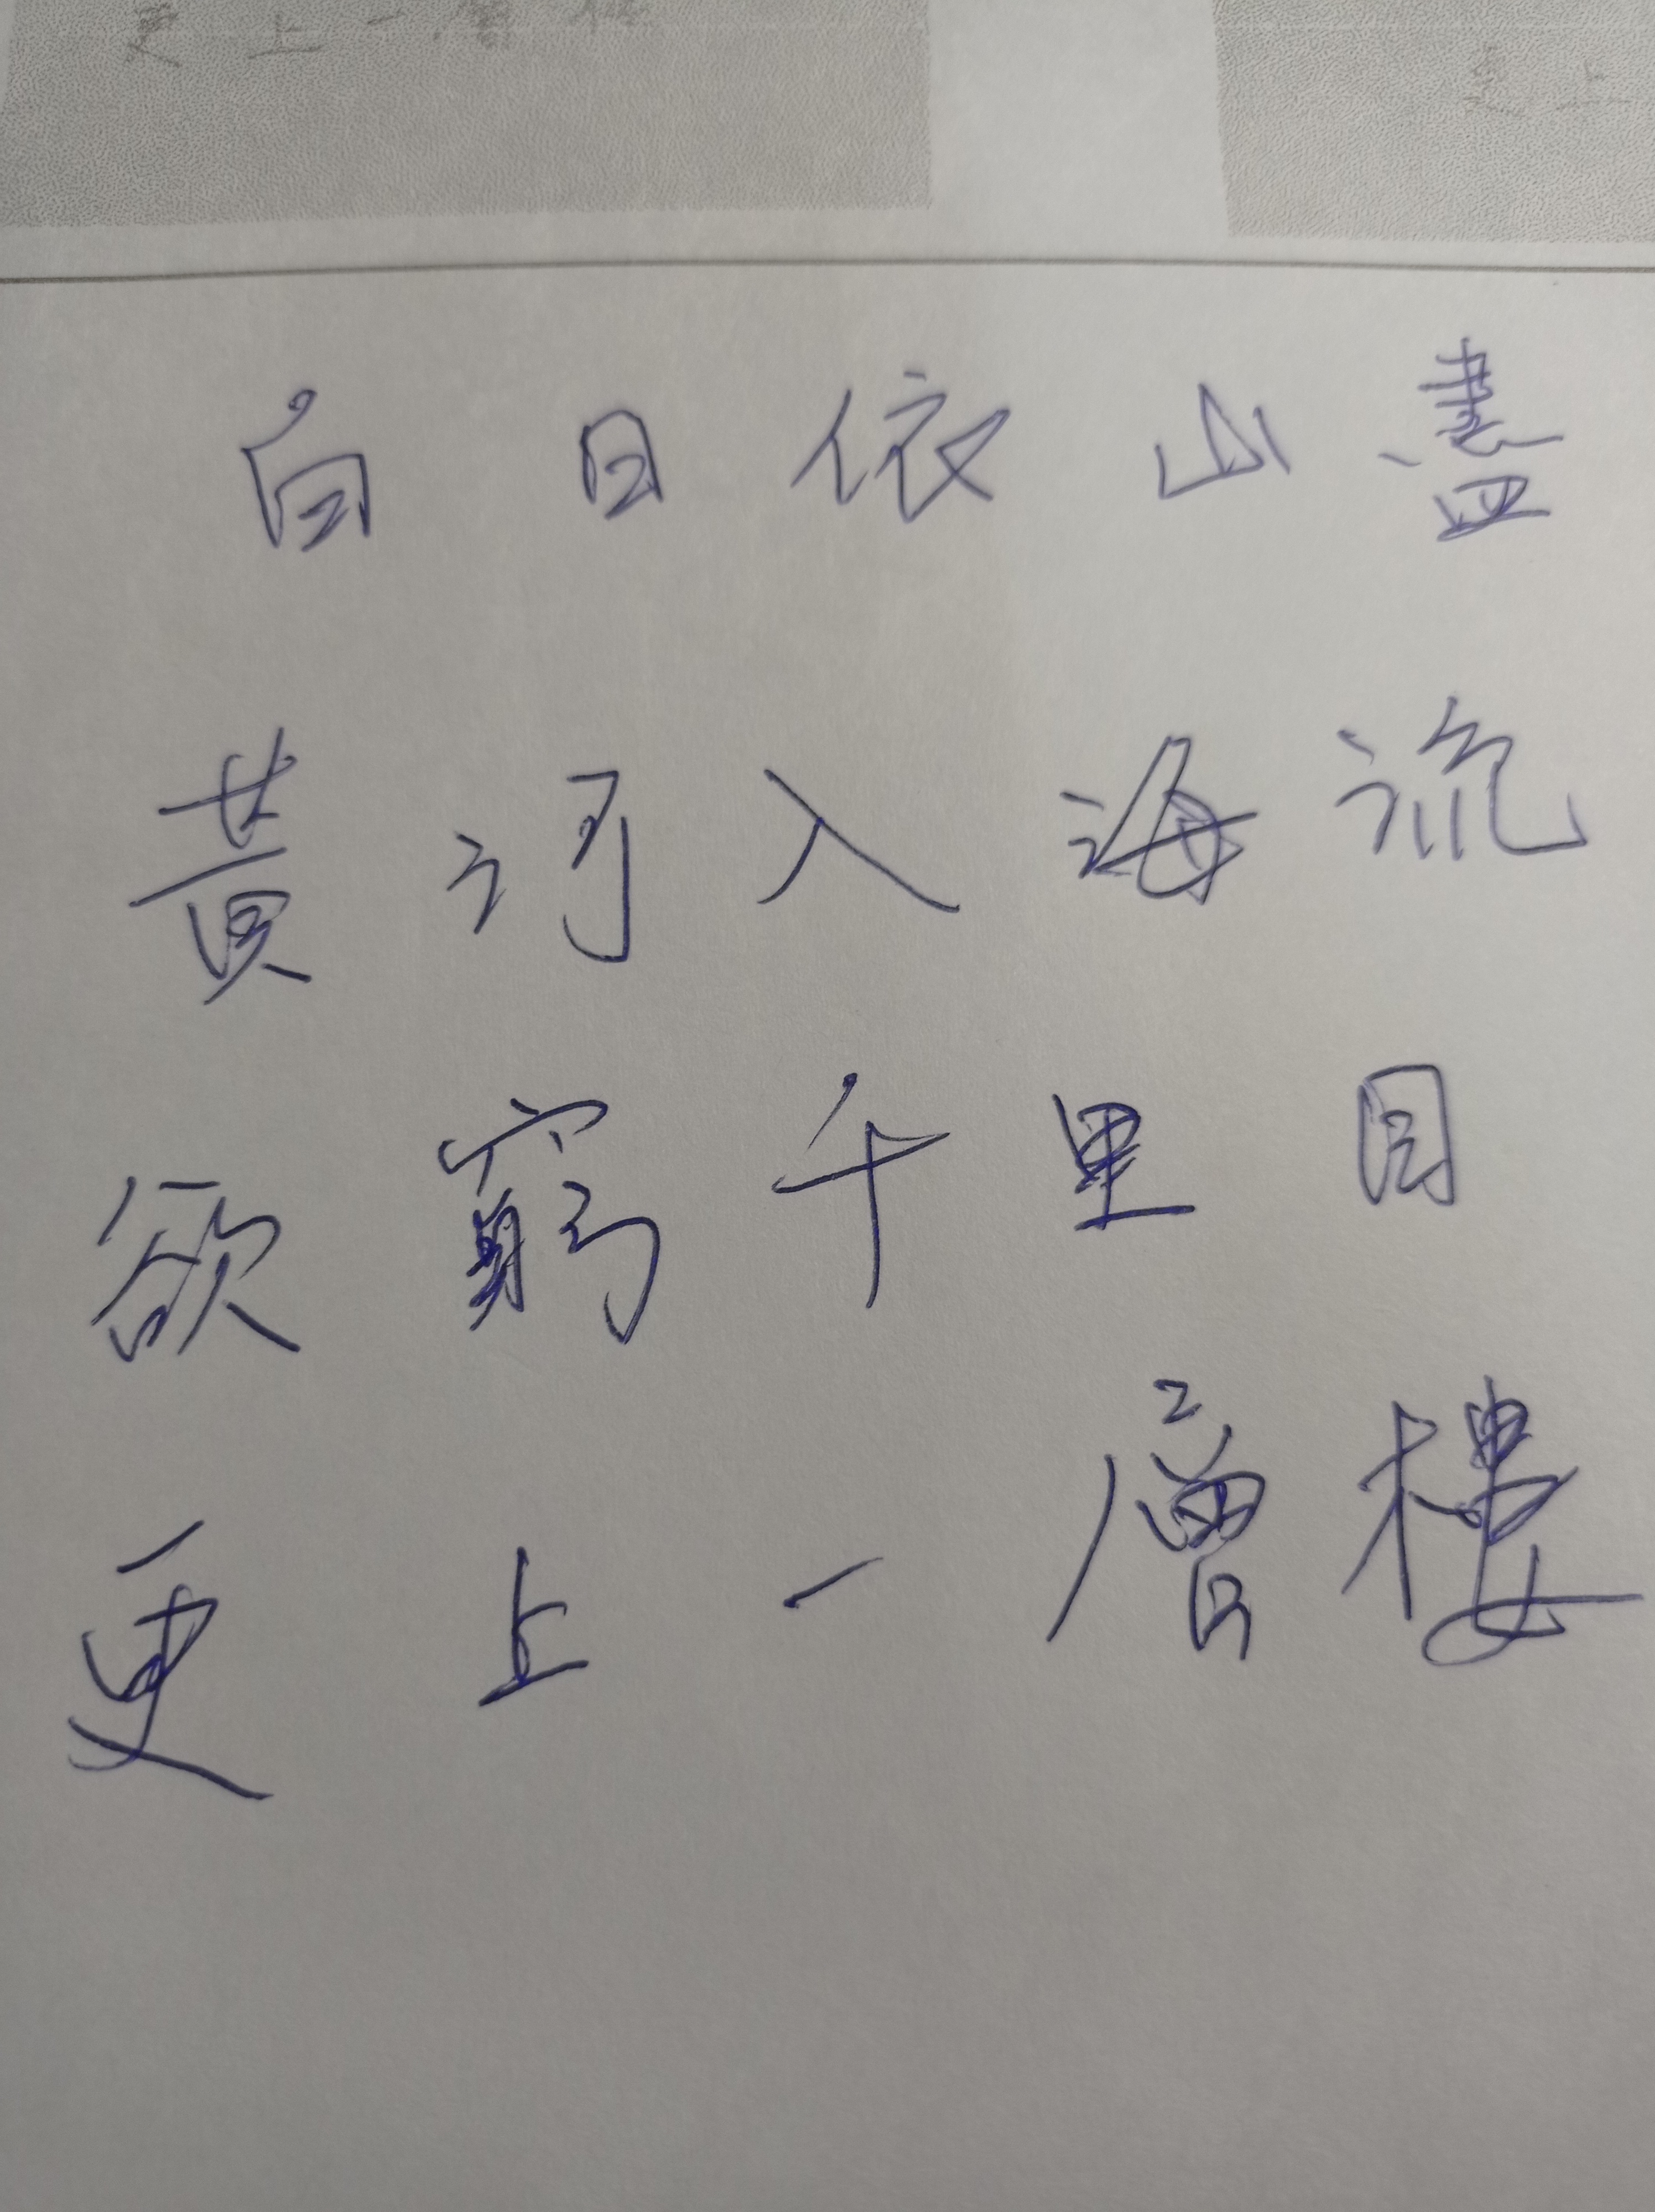 更上一層樓
更上
白日依山盡
黃河入海流
欲窮千里目
更上一層樓